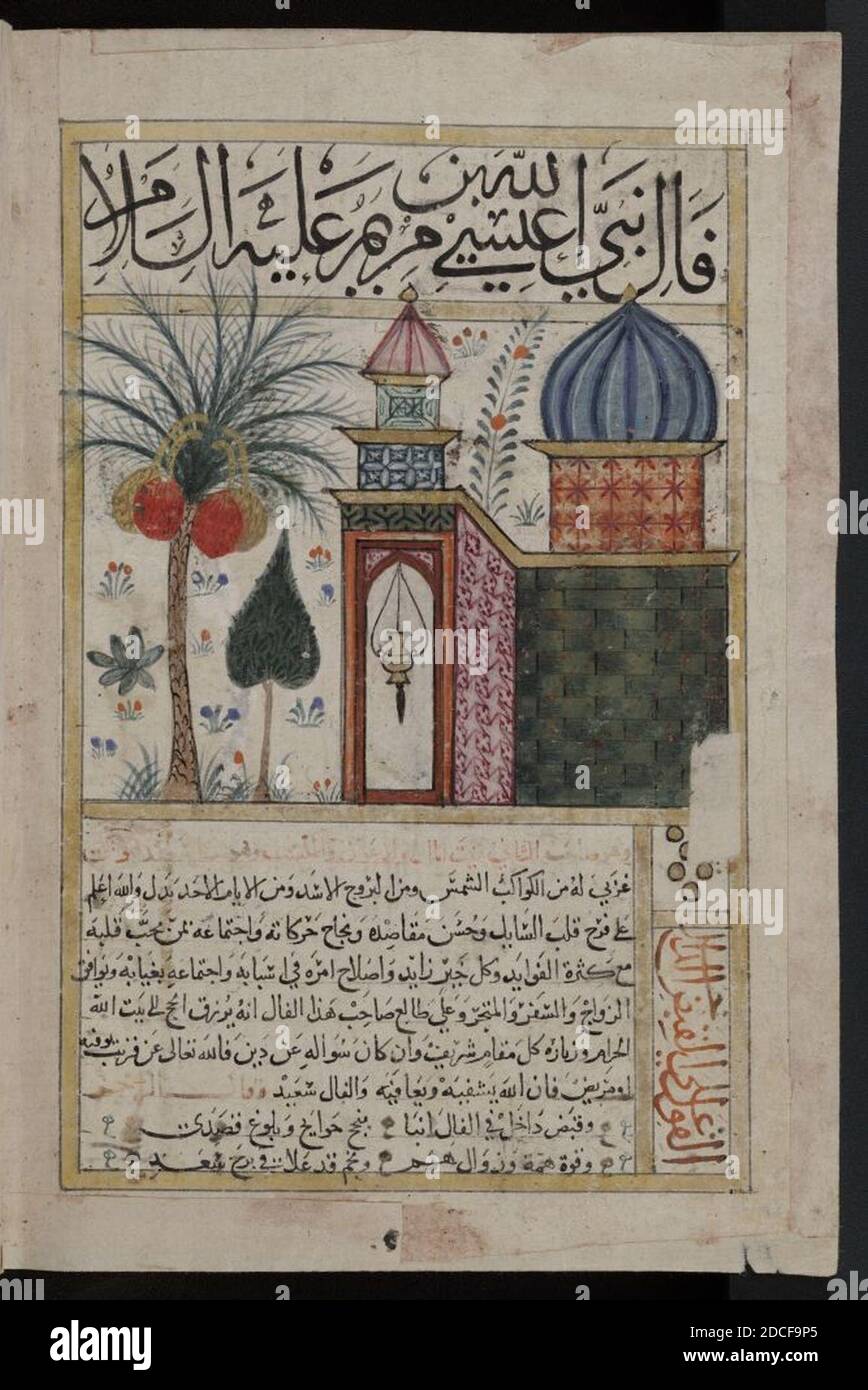 فال نبي الله عيسى بن مريم عليه السلام
غربي له من الكواكب الشمس ومن البروج الاسد ومن الايام الاحد يدل والله اعلم
على فرح قلب السايل وحسن مقاصده ونجاح حركاته واجتماعه بمن يحب قلبه
مع كثرة الفوايد وكل خير زايد واصلاح امره في اسبابه واجتماعه بغيابه ويوافق
الزواج والسفر والمتجر وعلى طالع صاحب هذا الفال انه يرزق الحج الى بيت الله
الحرام وزيارة كل مقام شريف وان كان سواله عن دين فالله تعالى عن قريب يوفيه
او مريض فان الله يشفيه ويعافيه والفال سعيد
وقبض داخل في الفال انبا بنجح حوايج وبلوغ قصدي
وقوة همة وزوال هم ونجم قد علاك في برج سعد
alamy
Image ID: 2DCF9P5
www.alamy.com